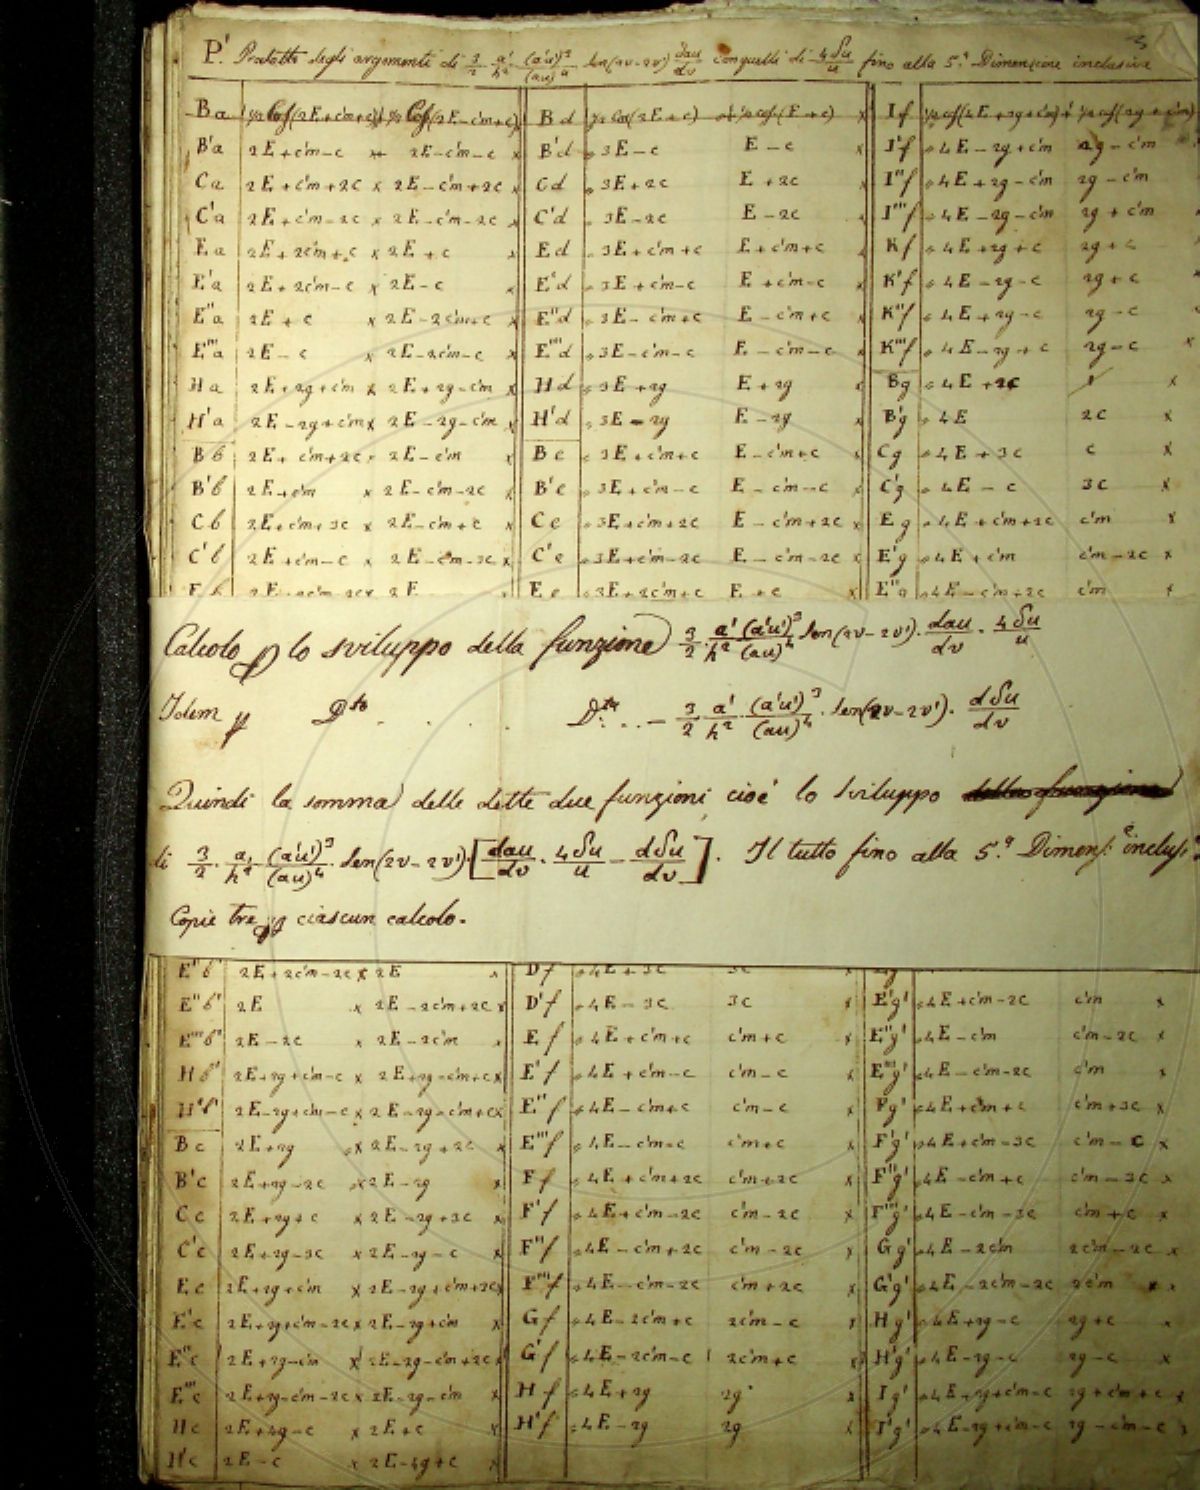 P'. Prodotto degli argomenti di 3/2 · a'/h² · (a'u')³/(au)⁴ sen(2v-2v') dau/dv con quelli di 4δu/u fino alla 5.ª Dimensione inclusive
Ba ½ Cos(2E+c'm+c) + ½ Cos(2E-c'm+c) Bd ½ Cos(3E+c) + ½ cos(E+c) If ½ cos(4E+2g+c'm) + ½ cos(2g+c'm)
B'a 2E+c'm-c x 2E-c'm-c x B'd 3E-c E-c x I'f 4E-2g+c'm 2g-c'm
Ca 2E+c'm+2c x 2E-c'm+2c x Cd 3E+2c E+2c I''f 4E+2g-c'm 2g-c'm
C'a 2E+c'm-2c x 2E-c'm-2c x C'd 3E-2c E-2c I'''f 4E-2g-c'm 2g+c'm
Ea 2E+2c'm+c x 2E+c x Ed 3E+c'm+c E+c'm+c Kf 4E+2g+c 2g+c
E'a 2E+2c'm-c x 2E-c x E'd 3E+c'm-c E+c'm-c x K'f 4E-2g-c 2g+c
E''a 2E+c x 2E-2c'm+c x E''d 3E-c'm+c E-c'm+c x K''f 4E+2g-c 2g-c
E'''a 2E-c x 2E-2c'm-c x E'''d 3E-c'm-c E-c'm-c x K'''f 4E-2g+c 2g-c x
Ha 2E+2g+c'm x 2E+2g-c'm x Hd 3E+2g E+2g Bg 4E+2c x
H'a 2E-2g+c'm x 2E-2g-c'm x H'd 3E-2g E-2g x B'g 4E 2c x
Bb 2E+c'm+2c 2E-c'm x Be 3E+c'm+c E-c'm+c x Cg 4E+3c c x
B'b 2E+c'm x 2E-c'm-2c x B'e 3E+c'm-c E-c'm-c x C'g 4E-c 3c x
Cb 2E+c'm+3c x 2E-c'm+c x Ce 3E+c'm+2c E-c'm+2c x Eg 4E+c'm+2c c'm x
C'b 2E+c'm-c x 2E-c'm-3c x C'e 3E+c'm-2c E-c'm-2c x E'g 4E+c'm c'm-2c x
Eb 2E Ee 3E+2c'm+c E+c x E''g 4E-c'm+2c c'm x
Calcolo p lo sviluppo della funzione 3/2 · a'/h² · (a'u')³/(au)⁴ sen(2v-2v') · dau/dv · 4δu/u
Idem p D.to . . . . D.ta . . - 3/2 · a'/h² · (a'u')³/(au)⁴ · sen(2v-2v') · dδu/dv
Quindi la somma delle dette due funzioni, cioè lo sviluppo
di 3/2 · a'/h² · (a'u')³/(au)⁴ · sen(2v-2v') · [dau/dv · 4δu/u - dδu/dv]. Il tutto fino alla 5.ª Dimens.e inclusi.e
Copie tre p ciascun calcolo.
E''b' 2E+2c'm-2c x 2E x Df 4E+3c 3c x
E''b' 2E x 2E-2c'm+2c x D'f 4E-3c 3c x E'g' 4E+c'm-2c c'm x
E'''b' 2E-2c x 2E-2c'm Ef 4E+c'm+c c'm+c x E''g' 4E-c'm c'm-2c x
Hb' 2E+2g+c'm-c x 2E+2g-c'm+c x E'f 4E+c'm-c c'm-c E'''g' 4E-c'm-2c c'm x
H'b' 2E-2g+c'm-c x 2E-2g-c'm+c x E''f 4E-c'm+c c'm-c x Fg' 4E+c'm+c c'm+3c x
Bc 2E+2g x 2E-2g+2c x E'''f 4E-c'm-c c'm+c x F'g' 4E+c'm-3c c'm-c x
B'c 2E+2g-2c x 2E-2g x Ff 4E+c'm+2c c'm+2c x F''g' 4E-c'm+c c'm-3c x
Cc 2E+2g+c x 2E-2g+3c x F'f 4E+c'm-2c c'm-2c x F'''g' 4E-c'm-3c c'm+c x
C'c 2E+2g-3c x 2E-2g-c x F''f 4E-c'm+2c c'm-2c x Gg' 4E-2c'm 2c'm-2c x
Ec 2E+2g+c'm x 2E-2g+c'm+2c x F'''f 4E-c'm-2c c'm+2c x G'g' 4E-2c'm-2c 2c'm x
E'c 2E+2g+c'm-2c x 2E-2g+c'm x Gf 4E-2c'm+c 2c'm-c x Hg' 4E+2g-c 2g+c x
E''c 2E+2g-c'm x 2E-2g-c'm+2c x G'f 4E-2c'm-c 2c'm+c x H'g' 4E-2g-c 2g-c x
E'''c 2E+2g-c'm-2c x 2E-2g-c'm x Hf 4E+2g 2g x Ig' 4E+2g+c'm-c 2g+c'm+c x
Hc 2E+4g-c x 2E+c x H'f 4E-2g 2g x I'g' 4E-2g+c'm-c 2g-c'm-c
H'c 2E-c x 2E-4g+c x